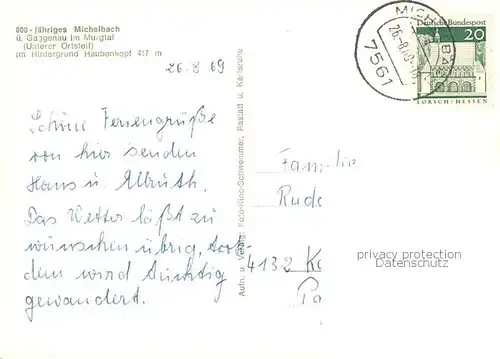 800-jähriges Michelbach
ü. Gaggenau im Murgtal
(Unterer Ortsteil)
im Hintergrund Haubenkopf 417 m
26.8.69
Schöne Feriengrüße
von hier senden
Hans u.
Das Wetter läßt zu
wünschen übrig, trotz-
dem wird tüchtig
gewandert.
Aufn. u. Verlag: Foto-Kino-Schwemmer, Rastatt u. Karlsruhe
Familie
Rude
4132 K
7561
26.-8.69
Deutsche Bundespost
20
LORSCH/HESSEN
privacy protection
Datenschutz